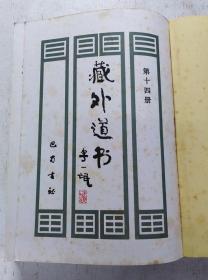 第十四册
藏外道书
李一氓
巴蜀书社